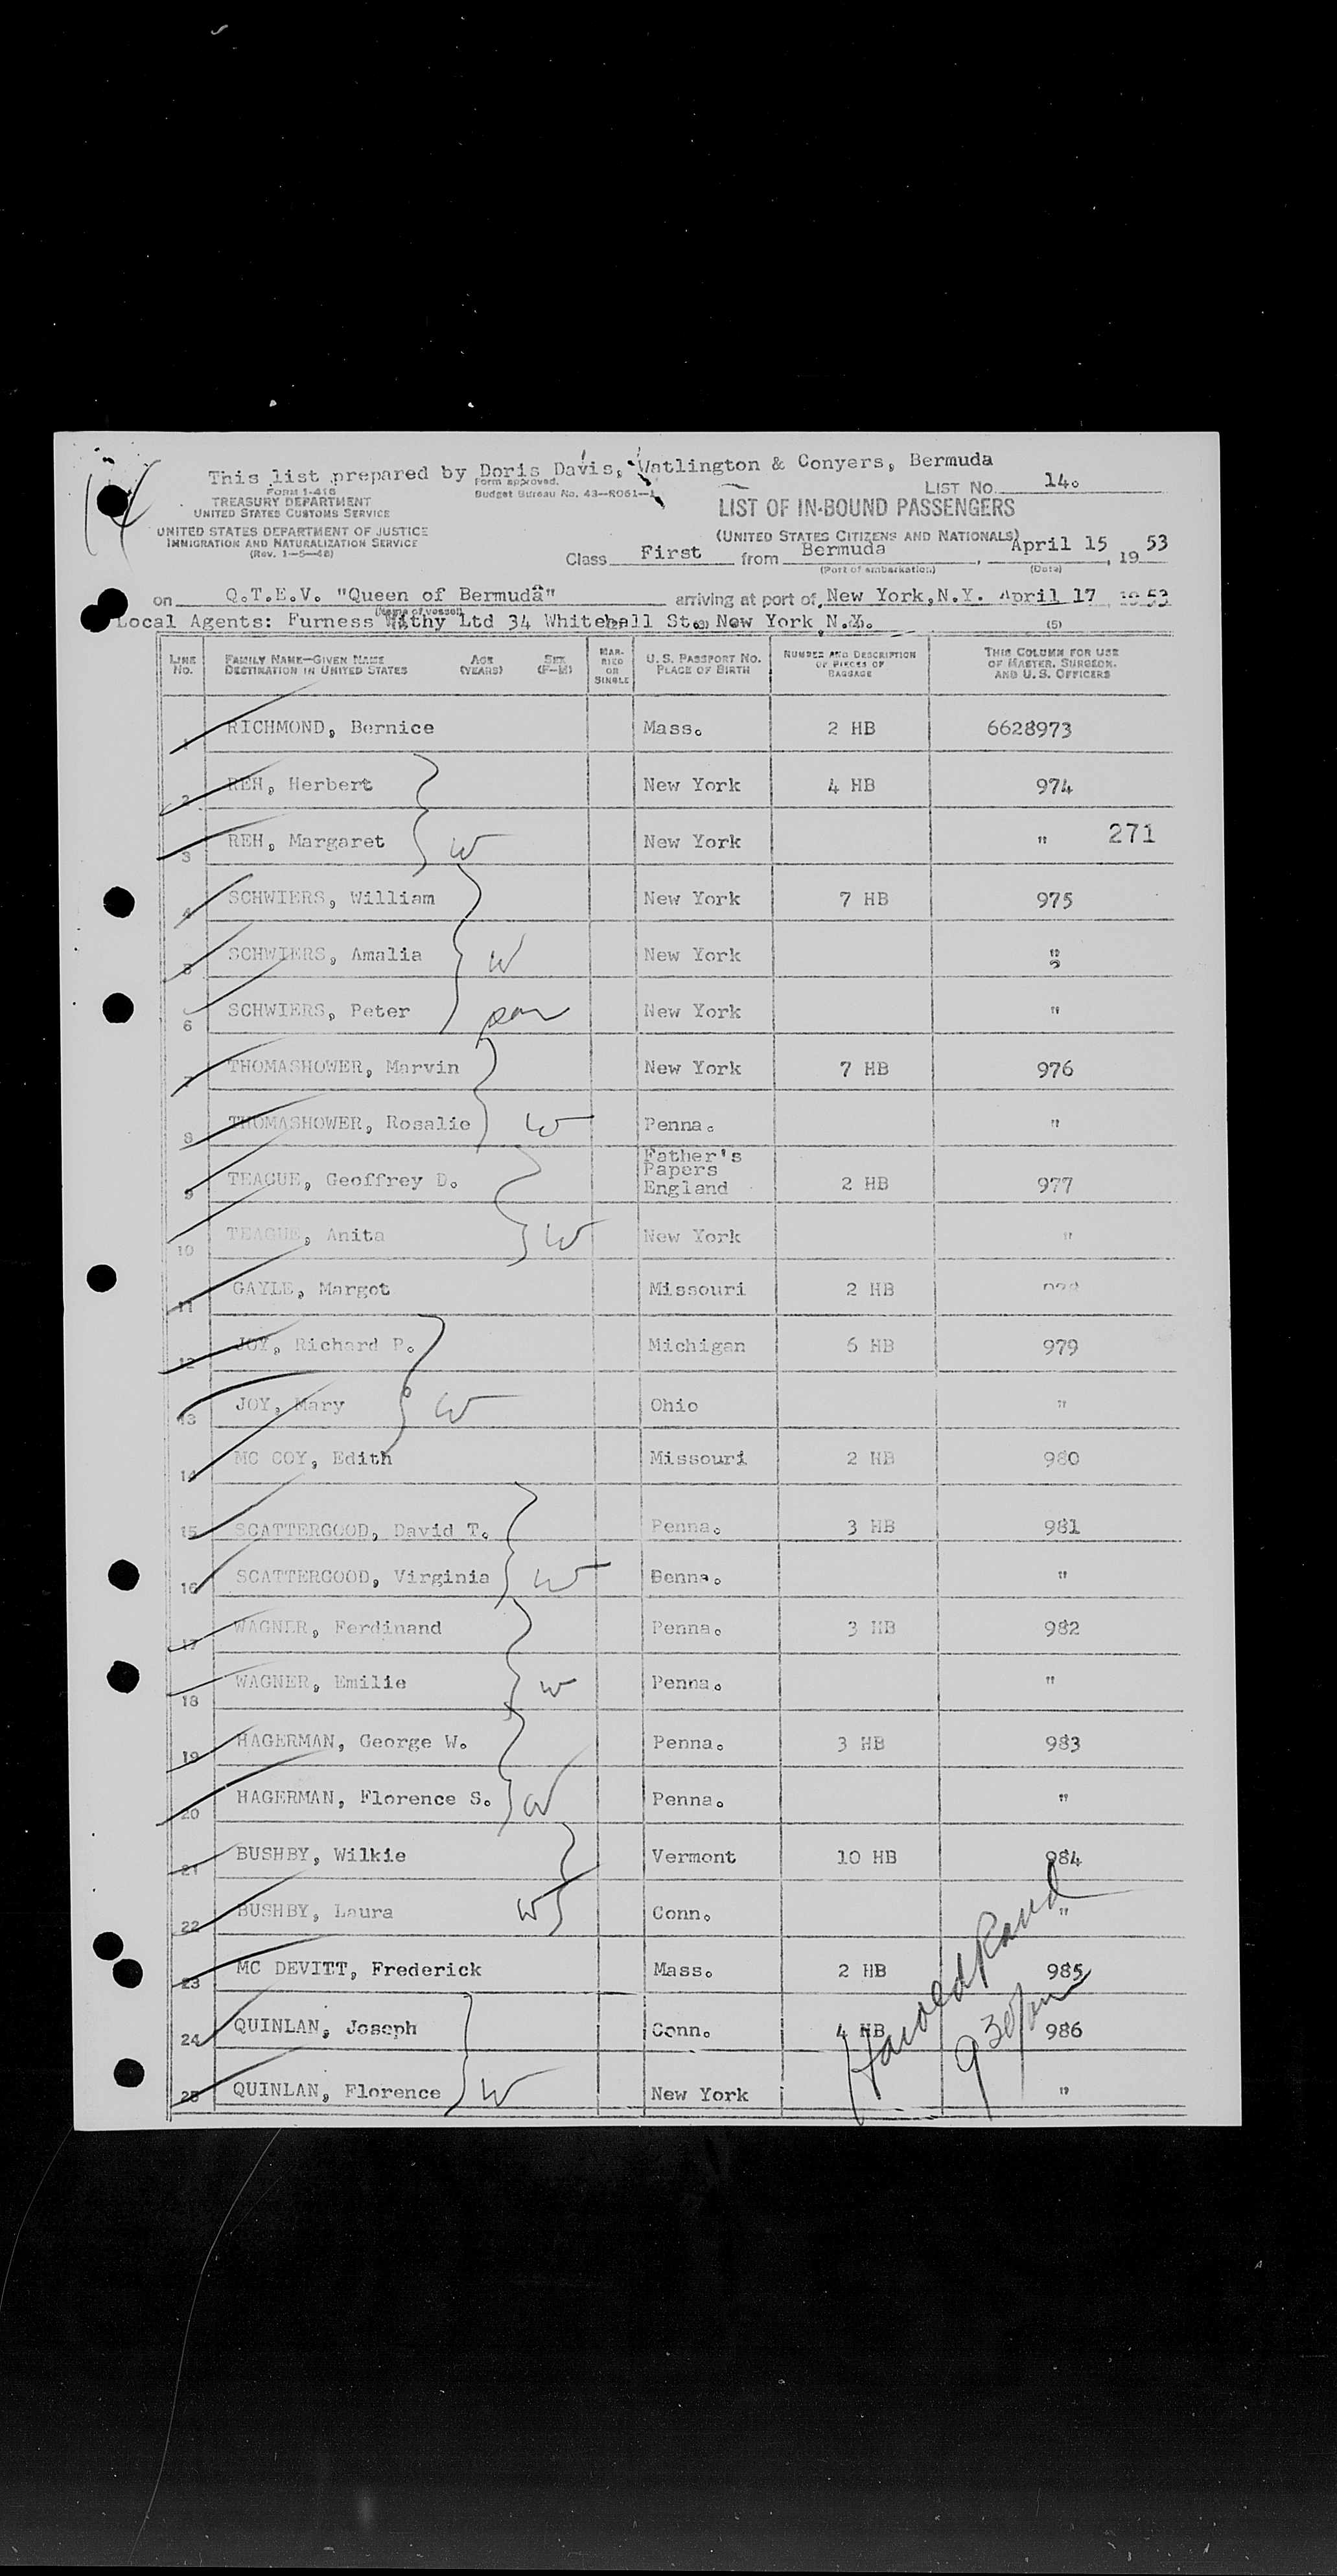 14
This list prepared by Doris Davis, Watlington & Conyers, Bermuda
Form I-418
TREASURY DEPARTMENT
UNITED STATES CUSTOMS SERVICE
UNITED STATES DEPARTMENT OF JUSTICE
IMMIGRATION AND NATURALIZATION SERVICE
(Rev. 1—5—48)
Form approved.
Budget Bureau No. 43—R061—1
LIST No. 14.
LIST OF IN-BOUND PASSENGERS
(UNITED STATES CITIZENS AND NATIONALS)
Class First from Bermuda, April 15, 1953
(Port of embarkation) (Date)
on Q.T.E.V. "Queen of Bermuda" arriving at port of New York, N.Y. April 17 1953
(Name of vessel)
Local Agents: Furness Withy Ltd 34 Whitehall St., New York N.Y.
(5)
LINE No. FAMILY NAME—GIVEN NAME DESTINATION IN UNITED STATES AGE (YEARS) SEX (F—M) MARRIED OR SINGLE U. S. PASSPORT NO. PLACE OF BIRTH NUMBER AND DESCRIPTION OF PIECES OF BAGGAGE THIS COLUMN FOR USE OF MASTER, SURGEON, AND U. S. OFFICERS
1 RICHMOND, Bernice Mass. 2 HB 6628973
2 REH, Herbert New York 4 HB 974
3 REH, Margaret W New York " 271
4 SCHWIERS, William New York 7 HB 975
5 SCHWIERS, Amalia W New York "
6 SCHWIERS, Peter son New York "
7 THOMASHOWER, Marvin New York 7 HB 976
8 THOMASHOWER, Rosalie W Penna. "
9 TEAGUE, Geoffrey D. Father's Papers England 2 HB 977
10 TEAGUE, Anita W New York "
11 GAYLE, Margot Missouri 2 HB 978
12 JOY, Richard P. Michigan 6 HB 979
13 JOY, Mary W Ohio "
14 MC COY, Edith Missouri 2 HB 980
15 SCATTERGOOD, David T. Penna. 3 HB 981
16 SCATTERGOOD, Virginia W Benna. "
17 WAGNER, Ferdinand Penna. 3 HB 982
18 WAGNER, Emilie W Penna. "
19 HAGERMAN, George W. Penna. 3 HB 983
20 HAGERMAN, Florence S. W Penna. "
21 BUSHBY, Wilkie Vermont 10 HB 984
22 BUSHBY, Laura W Conn. "
23 MC DEVITT, Frederick Mass. 2 HB 985
24 QUINLAN, Joseph Conn. 4 HB 986
25 QUINLAN, Florence W New York "
Harold Rand
930pm